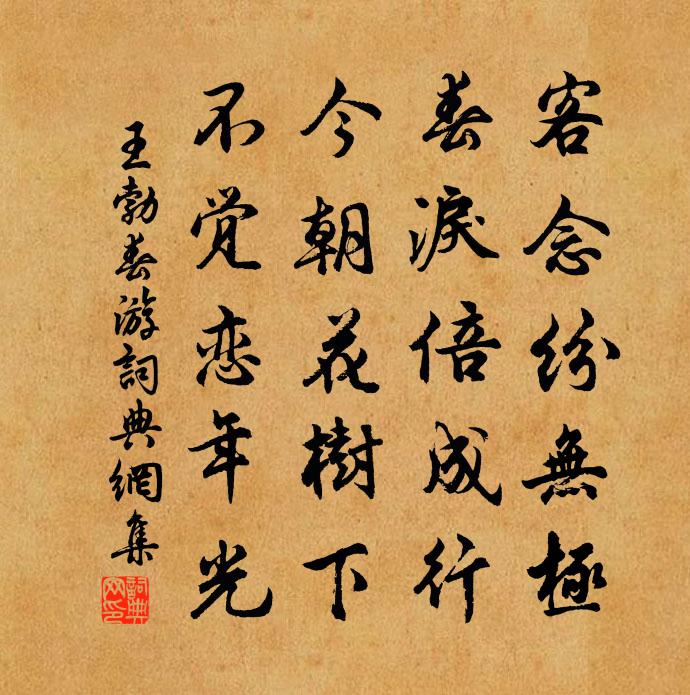 客念紛無極
春淚倍成行
今朝花樹下
不覺恋年光
王勃春游詞典網集
詞典网印